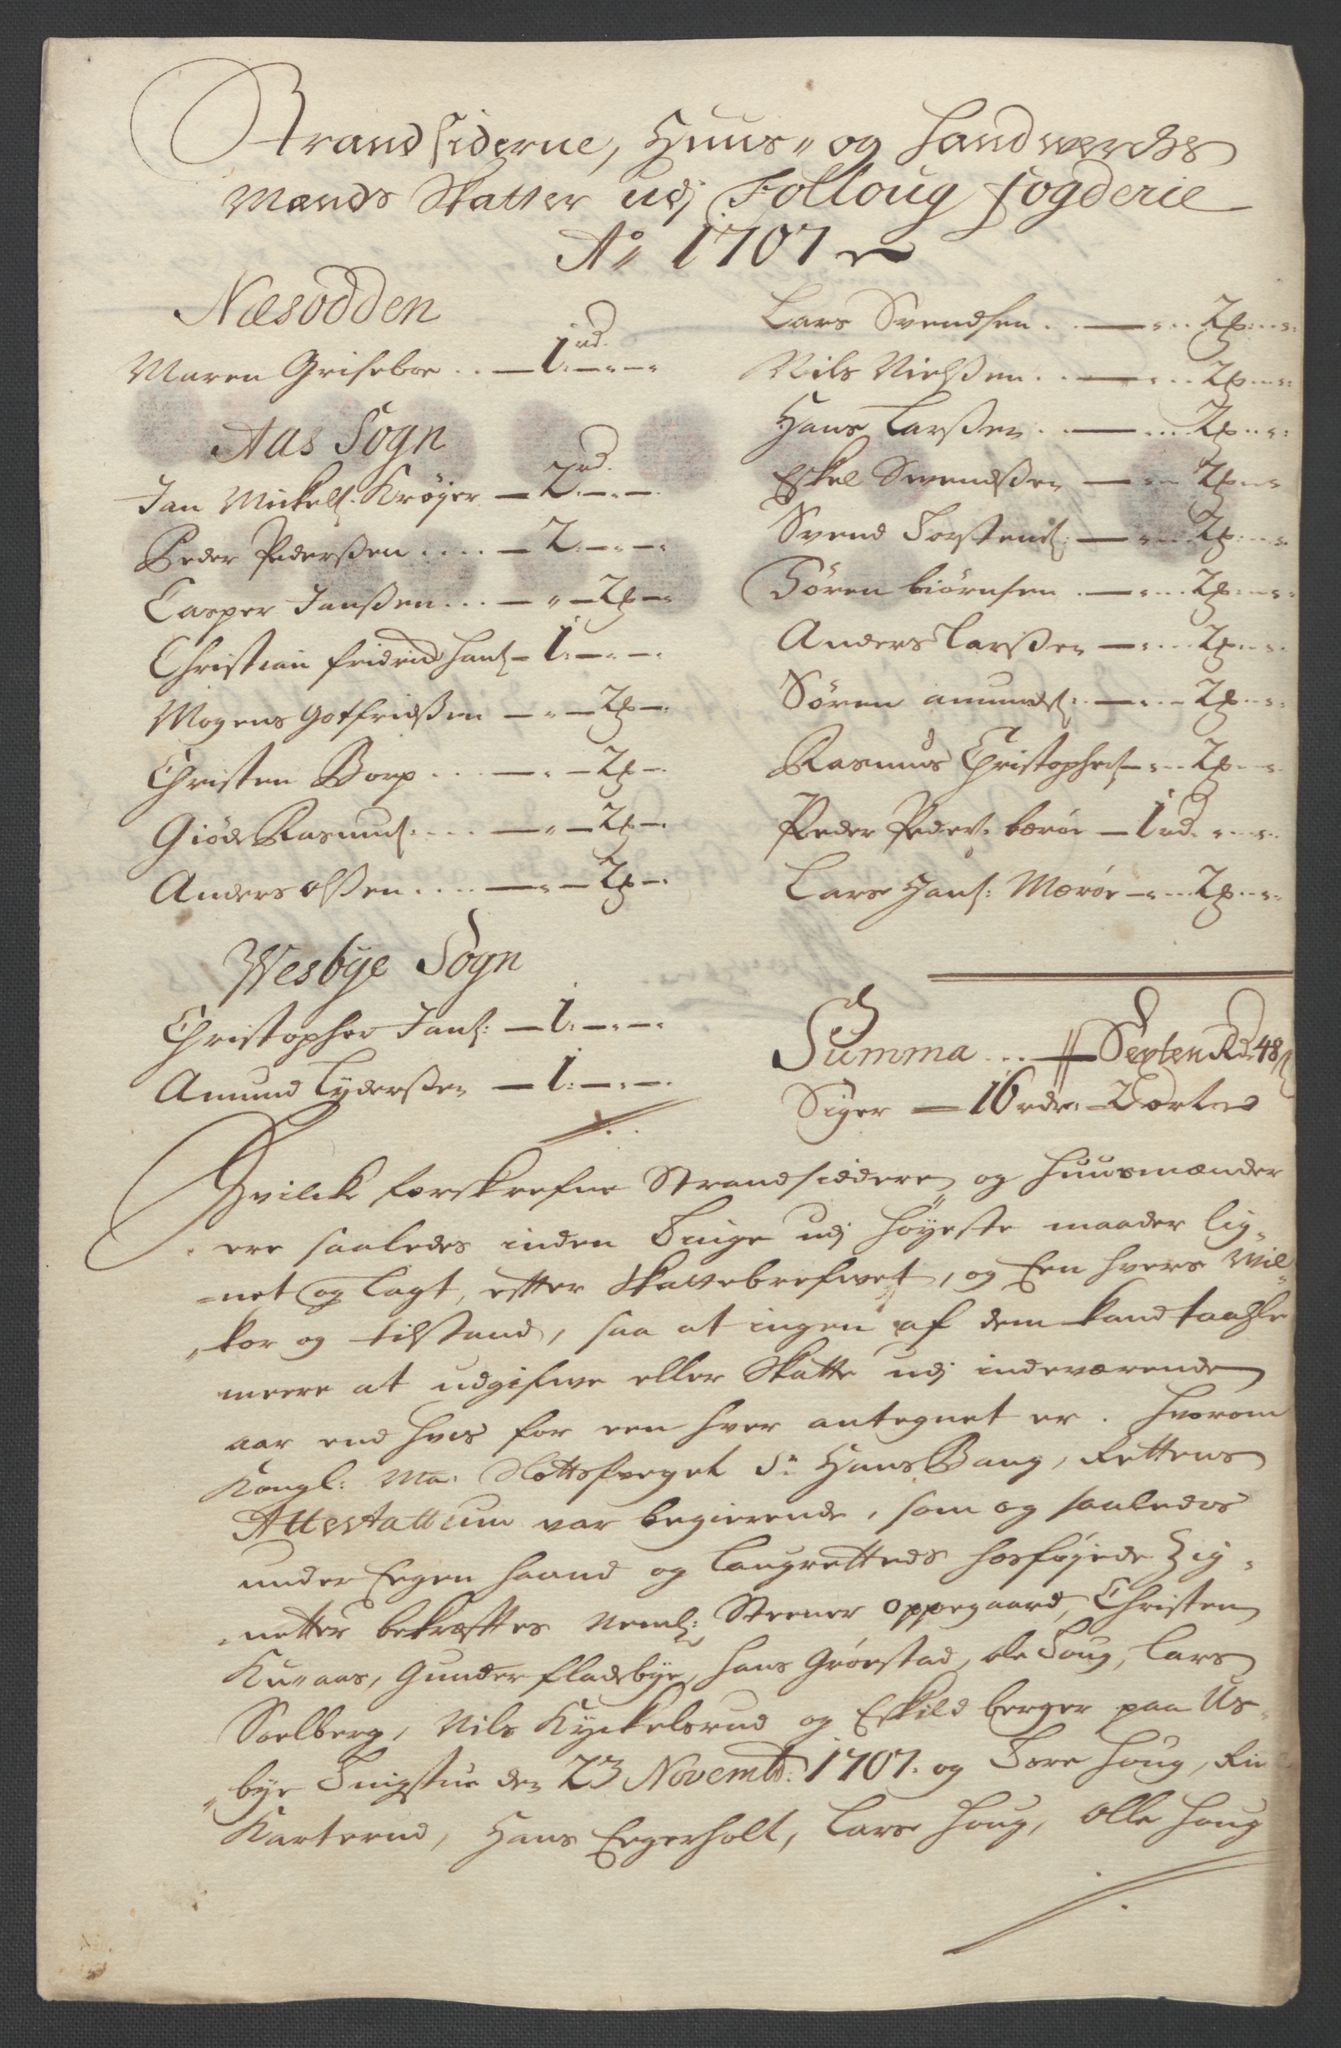 Strandsiderne, Huus- og Handwerchs
Mænds Skatter udj Folloug fogderie
Aō 1707
Næsodden
Maren Griseboe . . — 1 rd. — —
Aas Sogn
Jan Mickels: Krøyer — 2 rd. — —
Peder Pederßen . . . . — 2. — —
Casper Janßen . . . — „ — 2 ß —
Christian fridrich Hans: — 1. — —
Mogens Gotfridßen — „ — 2 ß —
Christen Borp . . . — „ — 2 ß —
Giøde Rasmus: . . . — „ — 2 ß —
Anders Olßen . . . . — „ — 2 ß —
Wesbye Sogn
Christopher Jans: — 1. — —
Amund Lyderßen — 1. — —
Lars Svendsen . . — . . 2 ß . . .
Nils Nielßen . . — . . 2 ß . . .
Hans Larßen . . — . . 2 ß . . .
Eskel Swendßen — . . 2 ß . . .
Svend Torstens: — . . 2 ß . . .
Sören biörnsen . — . . 2 ß . . .
Anders Larßen — . . 2 ß . . .
Søren amunds: . — . . 2 ß . . .
Rasmus Christophers: — . . 2 ß . . .
Peder Peders: bærøe — 1 rd. . . .
Lars Hans: Mærøe — . . 2 ß . . .
Summa . . . — Sexten Rd 48 ß
Siger — 16 rdr: 2 orter
Hvilcke forskrefne Strandsiddere, og Huusmænder
ere saaledes inden Tinge udj høyeste maader lig-
net og lagt, efter Skattebrefwet, og Een hvers wil-
kor og tilstand, saa at ingen af dem kand taahle
meere at udgifwe eller Skatte udj indeværende
aar end hvis for een hver antegnet er. Hvorom
Kongl: Ma: Slottsfoeget Sr Hans Bang, Rettens
Attestattium var begierende, som og saaledes
under Eegen haand og Laugretteds hosføyede Zig-
netter bekræfftes Neml: Steener Oppegaard, Christen
Ku-aas, Gunder fladebye, Hans Grøestad, Ole Toug, Lars
Soelberg, Nils Kyckelsrud og Eskild berger paa Us-
bye Tingstue den 23 Novemb: 1707. og Tore Houg,
Karterud, Hans Eegerholt, Lars Houg, Olle Houg